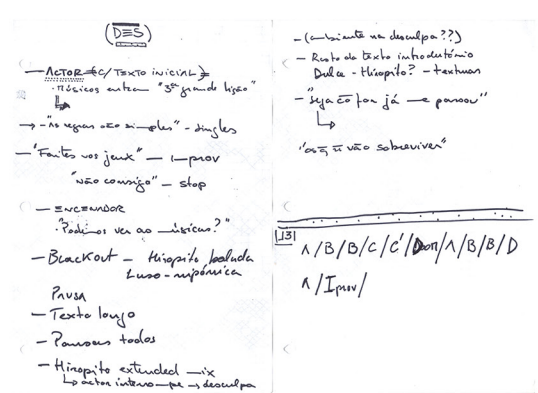 (DES)
— ACTOR (C/ TEXTO INICIAL)
· músicos entram "3ª grande lição"
→ — "As regras são simples" — singles
— "Faites vos jeux" — improv
"não consigo" — stop
— ENCENADOR
"Podemos ver ao músicos?"
— BLACKOUT — Hiropito balada
Luso-nipónica
PAUSA
— Texto longo
— Pausas todos
— Hiropito extended mix
↳ actor interrompe → desculpa
— (ambiente na desculpa??)
— Resto do texto introdutório
Dulce - Hiropito? - texturas
— "seja como for já — passou"
"os q ñ vão sobreviver"
131 A/B/B/C/C'/D/A/B/B/D
A/Improv/